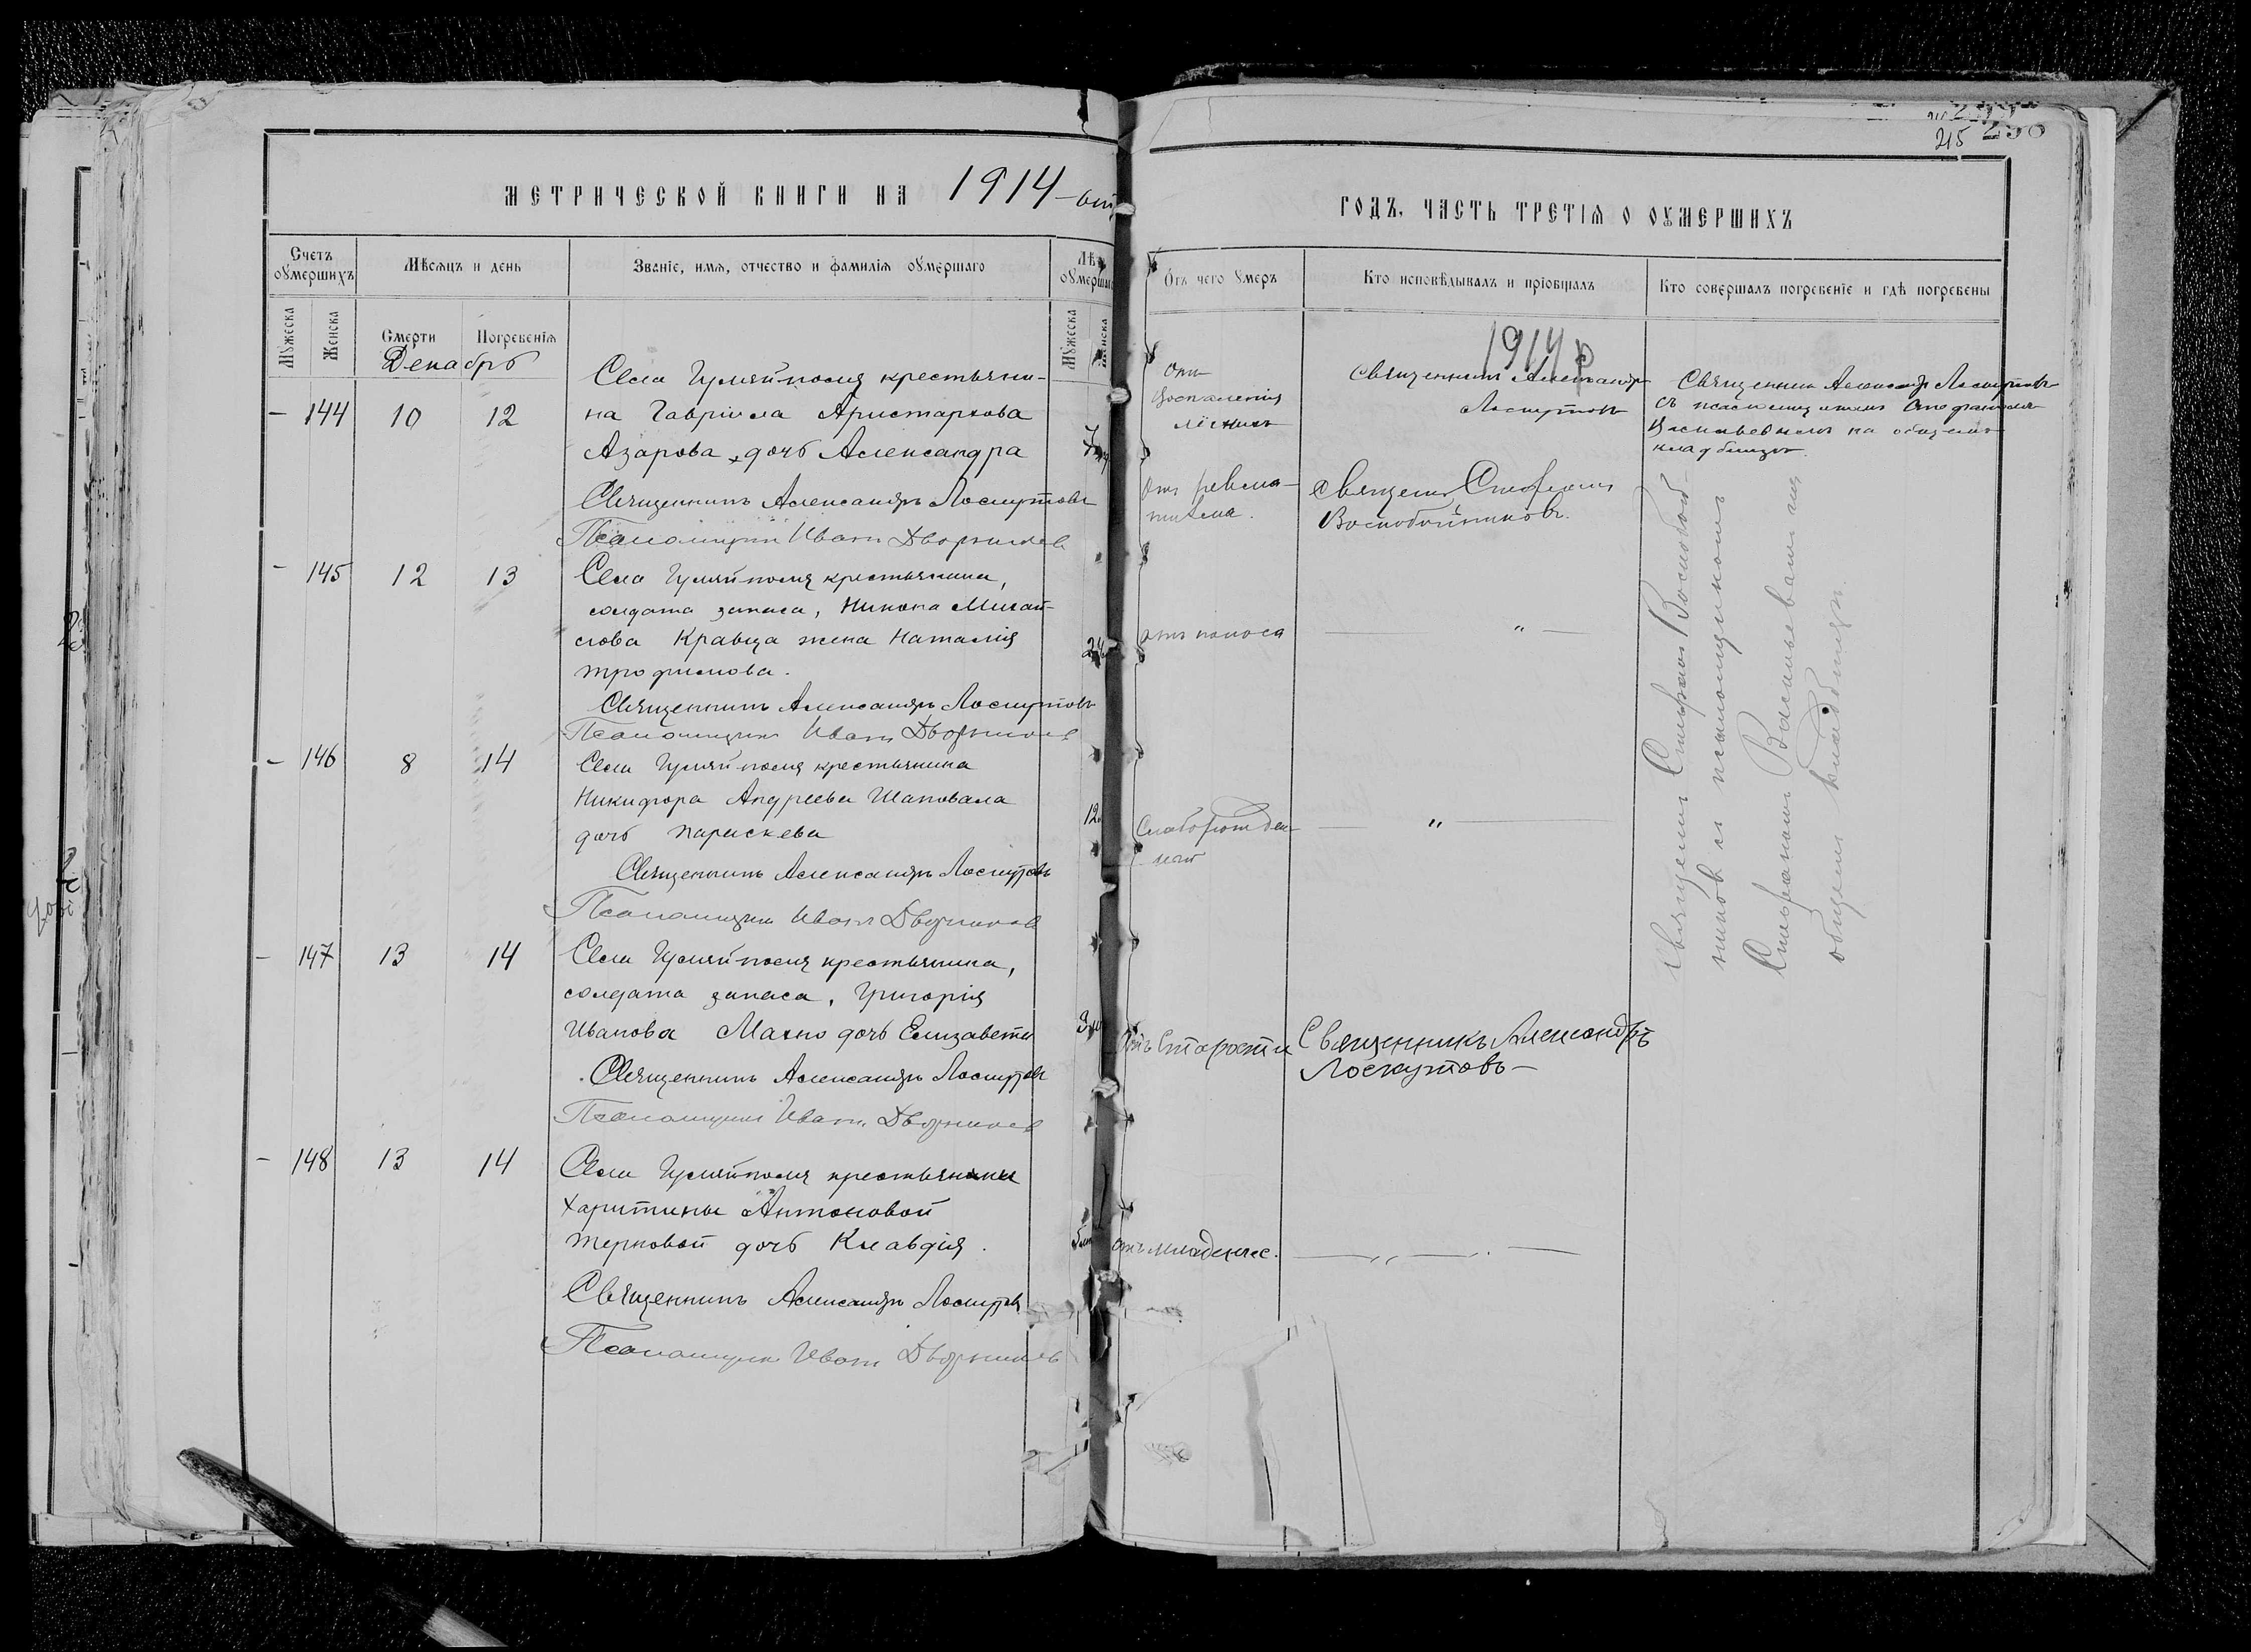 МЕТРИЧЕСКОЙ КНИГИ НА 1914
Счетъ оумершихъ
Мѣсяцъ и день
Званіе, имя, отчество и фамилія оумершаго
Мужеска
Женска
Смерти
Погребенія
Мужеска
Декабрь
144 10 12
Села Гуляйполя крестьяни-
на Гавріила Аристархова
Азарова дочь Александра
Священникъ Александръ Лоскутовъ
Псаломщикъ Иванъ Дворниковъ
145 12 13
Села Гуляйполя крестьянина,
солдата запаса, Никона Михай-
лова Кравца жена Наталія
Трофимова.
Священникъ Александръ Лоскутовъ
Псаломщикъ Иванъ Дворниковъ
146 8 14
Села Гуляйполя крестьянина
Никифора Андреева Шаповала
дочь Параскева
Священникъ Александръ Лоскутовъ
Псаломщикъ Иванъ Дворниковъ
147 13 14
Села Гуляйполя крестьянина,
солдата запаса, Григорія
Иванова Махно дочь Елизавета
Священникъ Александръ Лоскутовъ
Псаломщикъ Иванъ Дворниковъ
148 13 14
Села Гуляйполя крестьянки
Харитины Антоновой
Терновой дочь Клавдія.
Священникъ Александръ Лоскутовъ
Псаломщикъ Иванъ Дворниковъ
215
ГОДЪ, ЧАСТЬ ТРЕТІЯ О ОУМЕРШИХЪ
Отъ чего умеръ
Кто исповѣдывалъ и пріобщалъ
Кто совершалъ погребеніе и гдѣ погребены
1914
Отъ
воспаленія
легкихъ
Священникъ Александръ
Лоскутовъ
Священникъ Александръ Лоскутовъ
съ псаломщикомъ Стефаномъ
Васильевымъ на общемъ
кладбищѣ.
Отъ ревма-
тизма.
Священ. Стефанъ
Воскобойниковъ.
отъ поноса
"
Слаборожден-
"
отъ Старости
Священникъ Александръ
Лоскутовъ
отъ младенчес.
"
Священ. Стефанъ Воскобой-
никовъ съ псаломщикомъ
Стефаномъ Васильевымъ на
общемъ кладбищѣ.